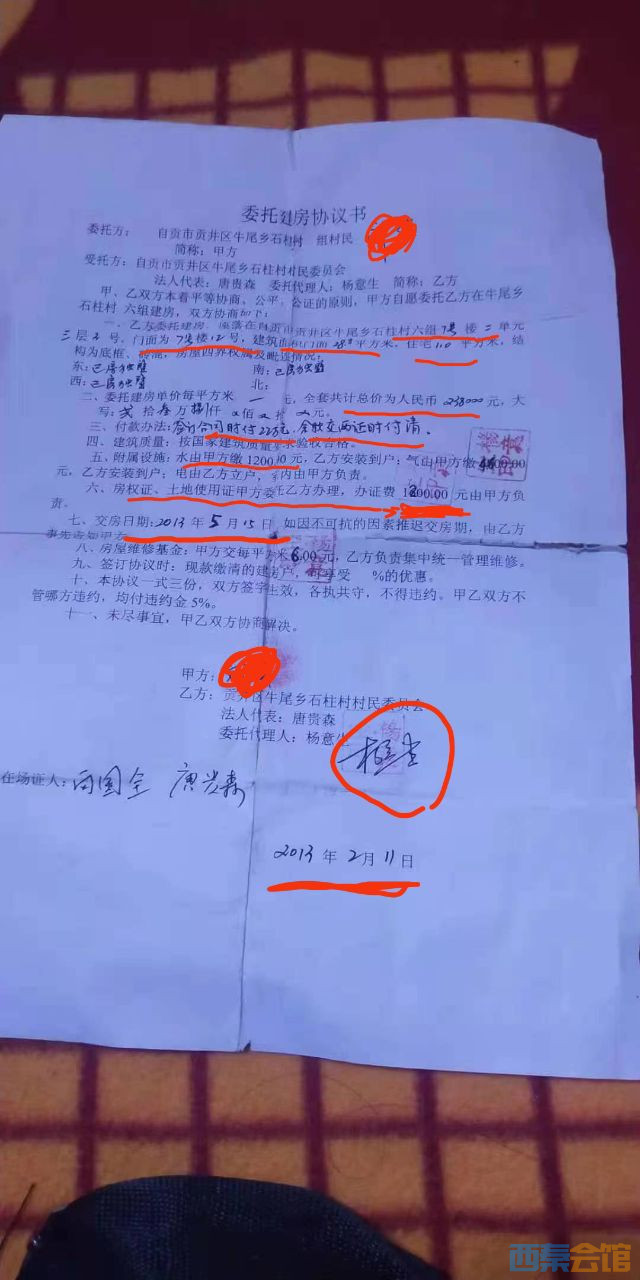 委托建房协议书
委托方： 自贡市贡井区牛尾乡石柱村 组村民
简称：甲方
受托方：自贡市贡井区牛尾乡石柱村村民委员会
法人代表：唐贵森 委托代理人：杨意生 简称：乙方
甲、乙双方本着平等协商、公平、公证的原则，甲方自愿委托乙方在牛尾乡
石柱村 六组建房，双方协商如下：
一、乙方委托建房，座落在自贡市贡井区牛尾乡石柱村六组7号楼二单元
三层2号，门面为7号楼12号，建筑面积门面 平方米，住宅110平方米，结
构为底框、砖混，房屋四界权属及毗连情况：
东：已房独壁 南：已房独壁
西：已房独壁 北：
二、委托建房单价每平方米 一 元，全套共计总价为人民币238000元，大
写：贰拾叁万捌仟 佰 拾 元。
三、付款办法：签订合同时付22万元，余款交两证时付清。
四、建筑质量：按国家建筑质量要求验收合格。
五、附属设施：水由甲方缴1200.00元，乙方安装到户；气由甲方缴 00.00
元，乙方安装到户；电由乙方立户，室内由甲方负责。
六、房权证、土地使用证甲方委托乙方办理，办证费1800.00元由甲方负
责。
七、交房日期：2013年5月15日，如因不可抗的因素推迟交房期，由乙方
事先告知甲方
八、房屋维修基金：甲方交每平方米6.00元，乙方负责集中统一管理维修。
九、签订协议时：现款缴清的建房户，可享受 %的优惠。
十、本协议一式三份，双方签字生效，各执共守，不得违约。甲乙双方不
管哪方违约，均付违约金5%。
十一、未尽事宜，甲乙双方协商解决。
甲方：
乙方：贡井区牛尾乡石柱村村民委员会
法人代表：唐贵森
委托代理人：杨意生
在场证人： 唐贵森
2013年2月11日
西秦会馆